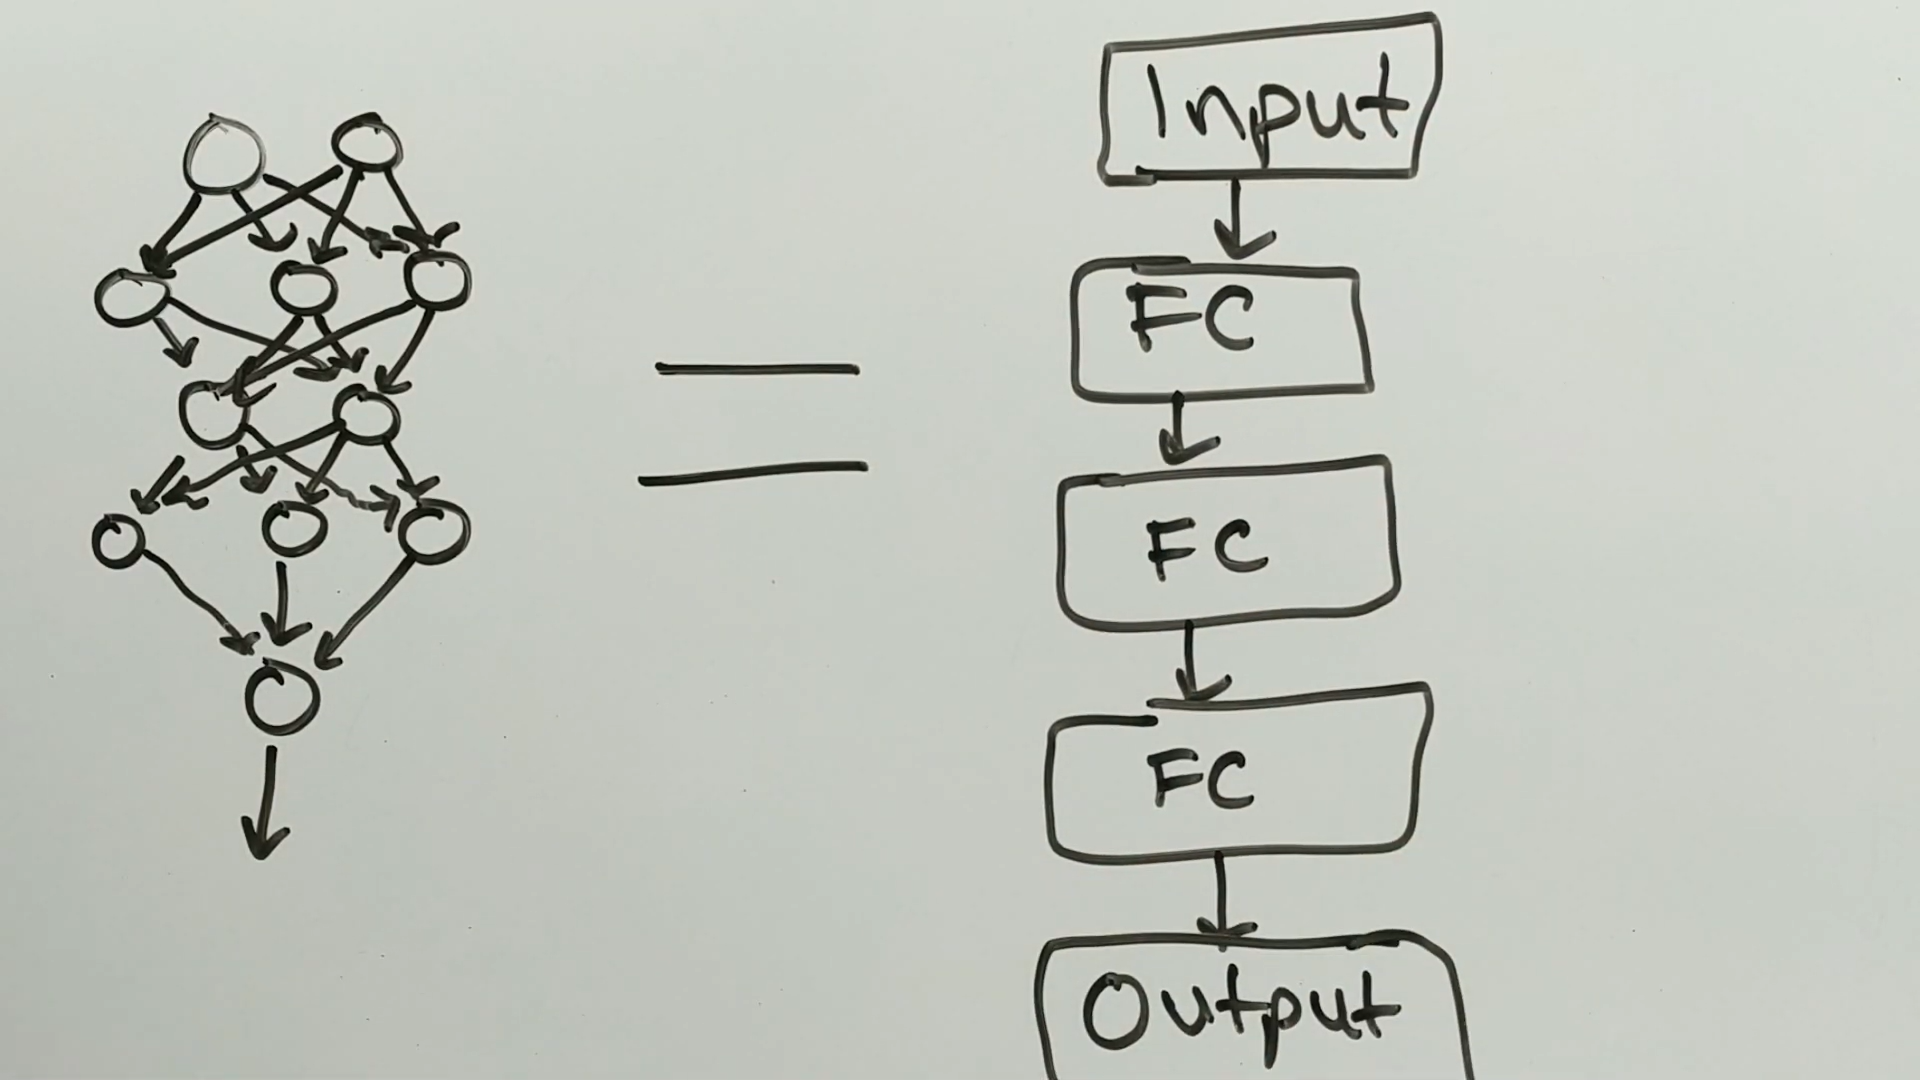 Input
FC
FC
FC
Output